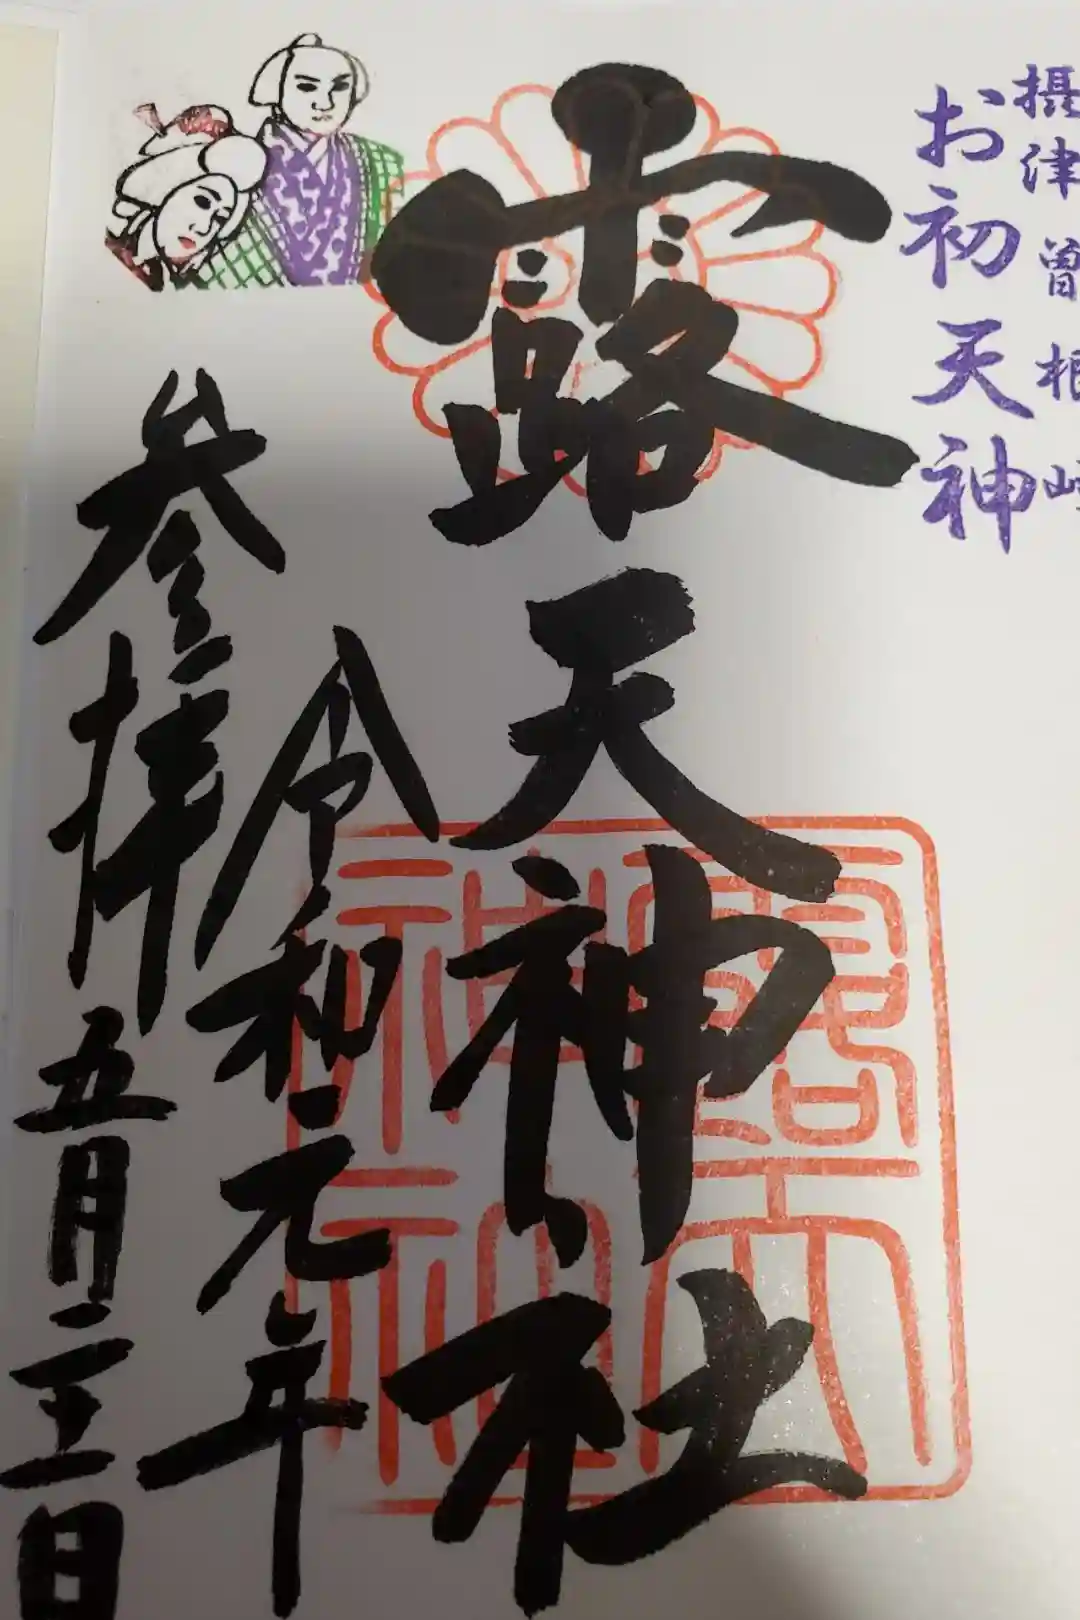 摂津曽根崎
お初天神
露天神社
令和元年
参拝 五月 日
露天
神社